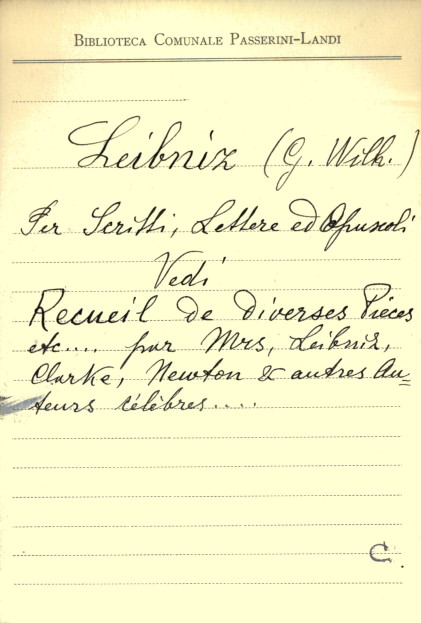 BIBLIOTECA COMUNALE PASSERINI-LANDI
Leibniz (G. Wilh.)
Per Scritti, Lettere ed Opuscoli
Vedi
Recueil de diverses Pièces
etc.... par Mrs, Leibniz,
Clarke, Newton & autres Au=
teurs célèbres....
C.